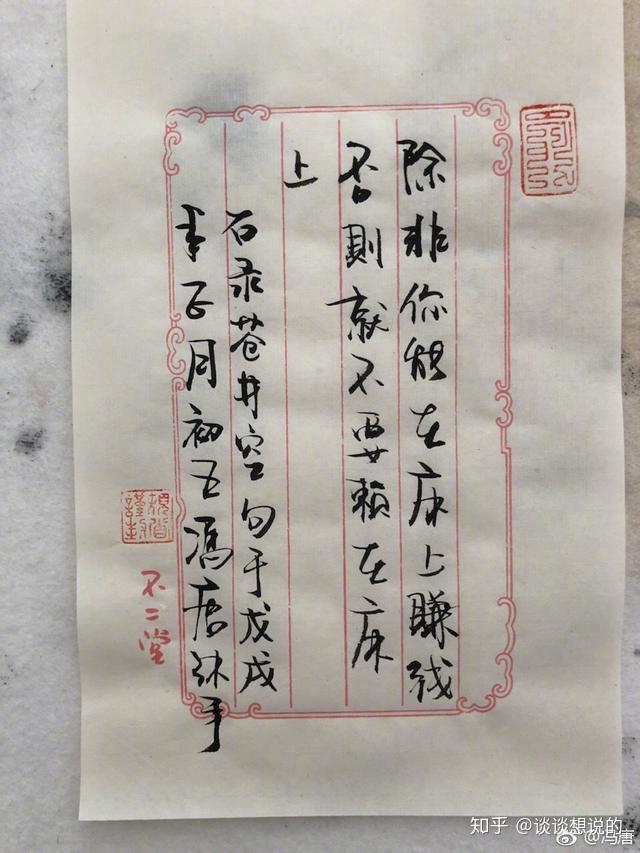 除非你能在床上賺钱
否則就不要賴在床
上
右录苍井空句于戊戌
年正月初五馮唐沐手
不二堂
知乎 @谈谈想说的
@冯唐